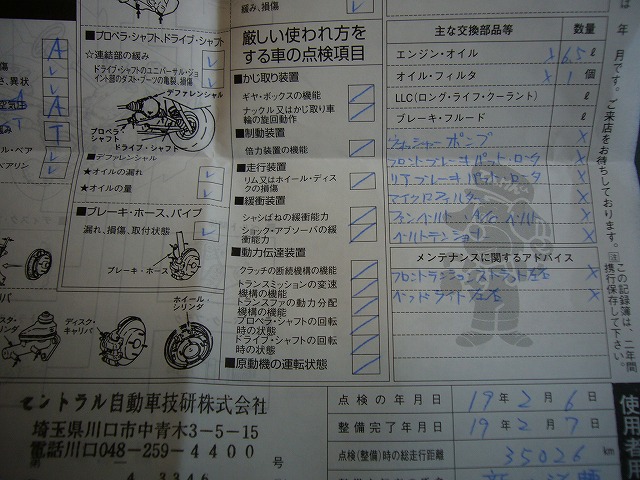 緩み、損傷
は
年
月です。ご来店をお待ちしております。
㊟この記録簿は、二年間携行保存して下さい。
使用者
A
A
T
損傷
さ、異状
緩み
■プロペラ・シャフト、ドライブ・シャフト
☆連結部の緩み
ドライブ・シャフトのユニバーサル・ジョ
イント部のダスト・ブーツの亀裂、損傷
デファレンシャル
プロペラ
シャフト
ドライブ・シャフト
■デファレンシャル
★オイルの漏れ
★オイルの量
■ブレーキ・ホース、パイプ
漏れ、損傷、取付状態
ブレーキ・ホース
ディスク・
キャリパ
ホイール・
シリンダ
厳しい使われ方を
する車の点検項目
■かじ取り装置
ギヤ・ボックスの機能
ナックル又はかじ取り車
輪の旋回動作
■制動装置
倍力装置の機能
■走行装置
リム又はホイール・ディス
クの損傷
■緩衝装置
シャシばねの緩衝能力
ショック・アブソーバの緩
衝能力
■動力伝達装置
クラッチの断続機構の機能
トランスミッションの変速
機構の機能
トランスファの動力分配
機構の機能
プロペラ・シャフトの回転
時の状態
ドライブ・シャフトの回転
時の状態
■原動機の運転状態
主な交換部品等 数量
エンジン・オイル × 6.5 ℓ
オイル・フィルタ × 1 個
LLC(ロング・ライフ・クーラント) ℓ
ブレーキ・フルード ℓ
ウォッシャー ポンプ ×
フロントブレーキパット・ロータ ×
リアブレーキパット・ロータ ×
マイクロフィルター ×
ファンベルト・A/C ベルト ×
ベルトテンショナ ×
メンテナンスに関するアドバイス
フロントテンションストラット左右 ×
ヘッドライト左右 ×
セントラル自動車技研株式会社
埼玉県川口市中青木3-5-15
電話川口048-259-4400
第 号
4 3346
点検の年月日 19年2月6日
整備完了年月日 19年2月7日
点検(整備)時の総走行距離 35026 km